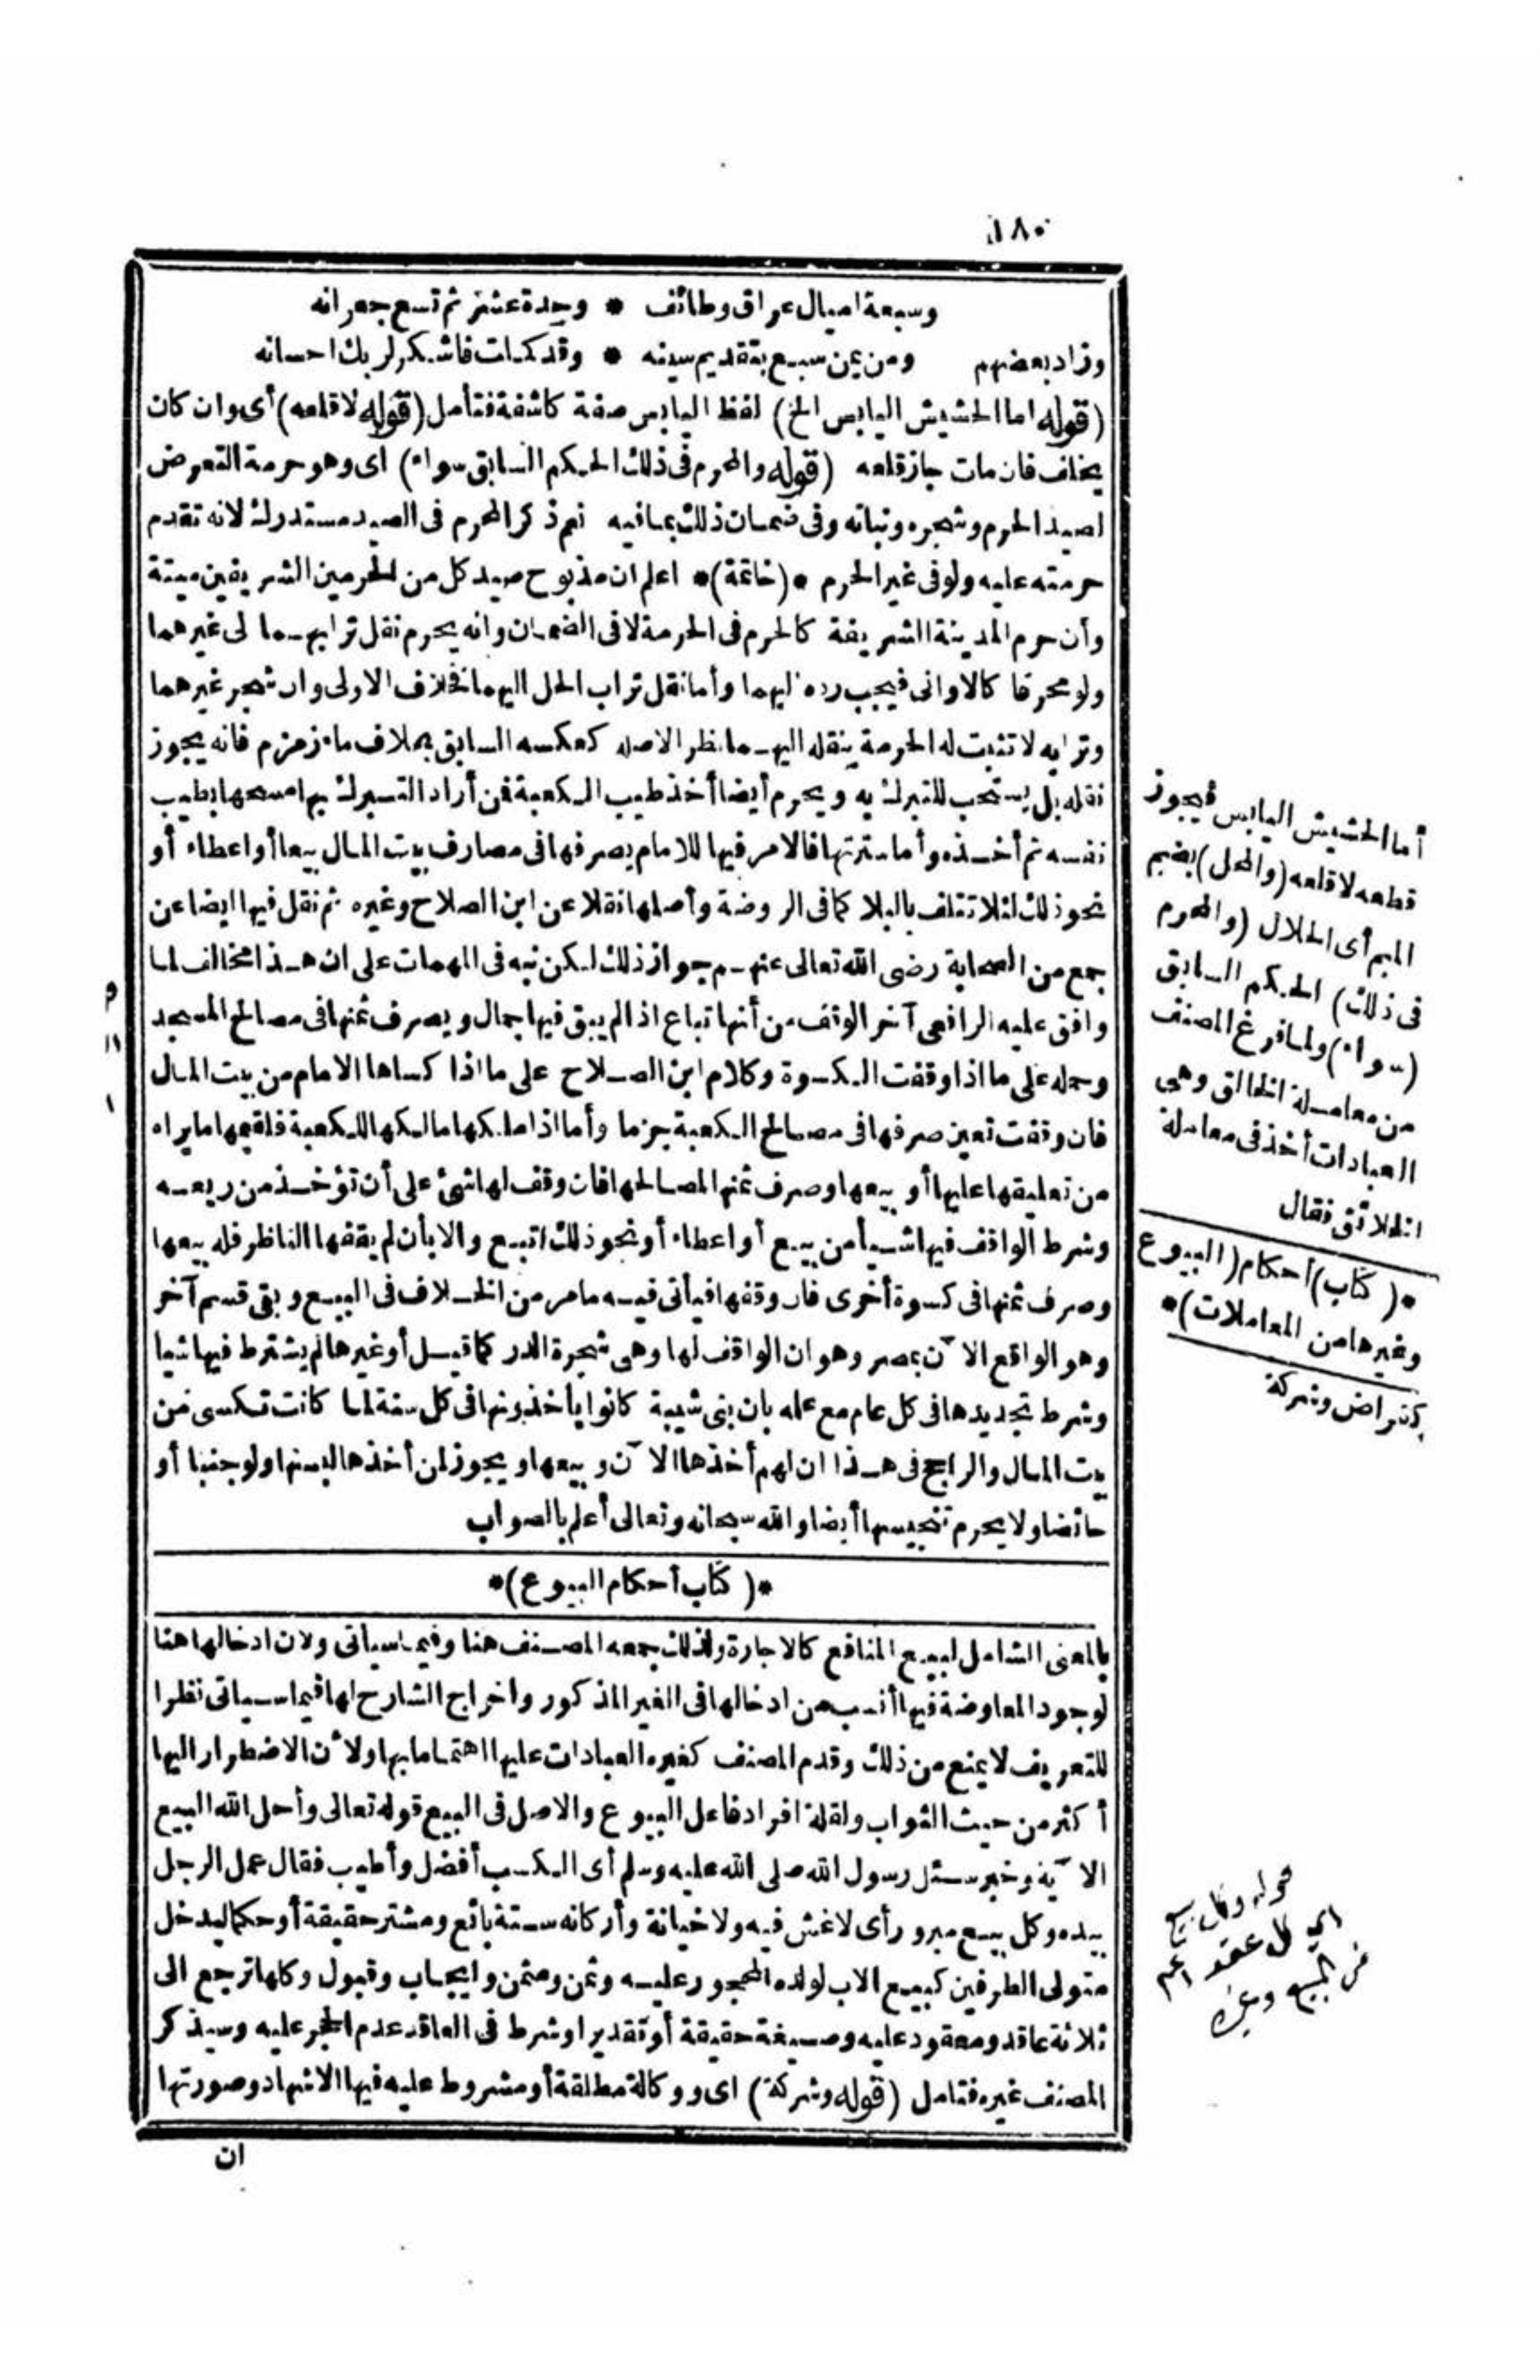 ١٨٠
وسبعة اميال عراق وطائف * وجدة عشر ثم تسع جعرانه
وزاد بعضهم ومن يمن سبع بتقديم سينه * وقد كملت فاشكر لربك احسانه
(قوله اما الحشيش اليابس الخ) لفظ اليابس صفة كاشفة فتأمل (قوله لا قلعه) أى وان كان
يخلف فان مات جاز قلعه (قوله والمحرم فى ذلك الحكم السابق سواء) اى وهو حرمة التعرض
لصيد الحرم وشجره ونباته وفى ضمان ذلك بما فيه نعم ذكر المحرم فى الصيد مستدرك لانه تقدم
حرمته عليه ولو فى غير الحرم *(خاتمة)* اعلم ان مذبوح صيد كل من الحرمين الشريفين ميتة
وأن حرم المدينة الشريفة كالحرم فى الحرمة لا فى الضمان وانه يحرم نقل ترابهما لى غيرهما
ولو محرقا كالاوانى فيجب رده اليهما وأما نقل تراب الحل اليهما فخلاف الاولى وان شجر غيرهما
وترابه لا تثبت له الحرمة بنقله اليهما نظر الاصله كعكسه السابق بخلاف ماء زمزم فانه يجوز
نقله بل يستحب للتبرك به ويحرم أيضا أخذ طيب الكعبة فمن أراد التبرك بها مسحها بطيب
نفسه ثم أخذه وأما سترتها فالامر فيها للامام يصرفها فى مصارف بيت المال بيعا أو اعطاء أو
نحو ذلك لئلا تتلف بالبلا كما فى الروضة وأصلها نقلا عن ابن الصلاح وغيره ثم نقل فيها ايضا عن
جمع من الصحابة رضى الله تعالى عنهم جواز ذلك لكن نبه فى المهمات على ان هذا مخالف لما
وافق عليه الرافعى آخر الوقف من أنها تباع اذا لم يبق فيها جمال ويصرف ثمنها فى مصالح المسجد
وحمله على ما اذا وقفت الكسوة وكلام ابن الصلاح على ما اذا كساها الامام من بيت المال
فان وقفت تعين صرفها فى مصالح الكعبة جزما وأما اذا ملكها مالكها للكعبة فلقيمها ما يراه
من تعليقها عليها أو بيعها وصرف ثمنها لمصالحها فان وقف لها شئ على أن تؤخذ من ريعه
وشرط الواقف فيها شيأ من بيع أو اعطاء أو نحو ذلك اتبع والا بأن لم يقفها الناظر فله بيعها
وصرف ثمنها فى كسوة أخرى فان وقفها فيأتى فيه ما مر من الخلاف فى البيع وبقى قسم آخر
وهو الواقع الآن بمصر وهو ان الواقف لها وهى شجرة الدر كما قيل أو غيرها لم يشترط فيها شيا
وشرط تجديدها فى كل عام مع علمه بان بنى شيبة كانوا يأخذونها فى كل سنة لما كانت تكسى من
بيت المال والراجح فى هذا ان لهم أخذها الآن وبيعها ويجوز لمن أخذها لبسها ولو جنبا أو
حائضا ولا يحرم تنجيسها أيضا والله سبحانه وتعالى أعلم بالصواب
*(كتاب أحكام البيوع)*
بالمعنى الشامل لبيع المنافع كالاجارة ولذلك جمعه المصنف هنا وفيما سيأتى ولان ادخالها هنا
لوجود المعاوضة فيها أنسب من ادخالها فى الغير المذكور واخراج الشارح لها فيما سيأتى نظرا
للتعريف لا يمنع من ذلك وقدم المصنف كغيره العبادات عليها اهتماما بها ولأن الاضطرار اليها
أكثر من حيث الثواب ولقلة افراد فاعل البيوع والاصل فى البيع قوله تعالى وأحل الله البيع
الآية وخبر سئل رسول الله صلى الله عليه وسلم أى الكسب أفضل وأطيب فقال عمل الرجل
بيده وكل بيع مبرور أى لا غش فيه ولا خيانة وأركانه ستة بائع ومشتر حقيقة أو حكما ليدخل
متولى الطرفين كبيع الاب لولده المحجور عليه وثمن ومثمن وايجاب وقبول وكلها ترجع الى
ثلاثة عاقد ومعقود عليه وصيغة حقيقة أو تقديرا وشرط فى العاقد عدم الحجر عليه وسيذكر
المصنف غيره فتامل (قوله وشركة) اى ووكالة مطلقة أو مشروط عليه فيها الاشهاد وصورتها
ان
أما الحشيش اليابس فيجوز
قطعه لا قلعه (والمحل) بضم
الميم أى الحلال (والمحرم
فى ذلك) الحكم السابق
(سواء) ولما فرغ المصنف
من معاملة الخالق وهى
العبادات أخذ فى معاملة
الخلائق فقال
*(كتاب) أحكام (البيوع
وغيرها من المعاملات)*
كقراض وشركة
قوله وكل بيع
اي كل عقد اعم
من البيع وغيره